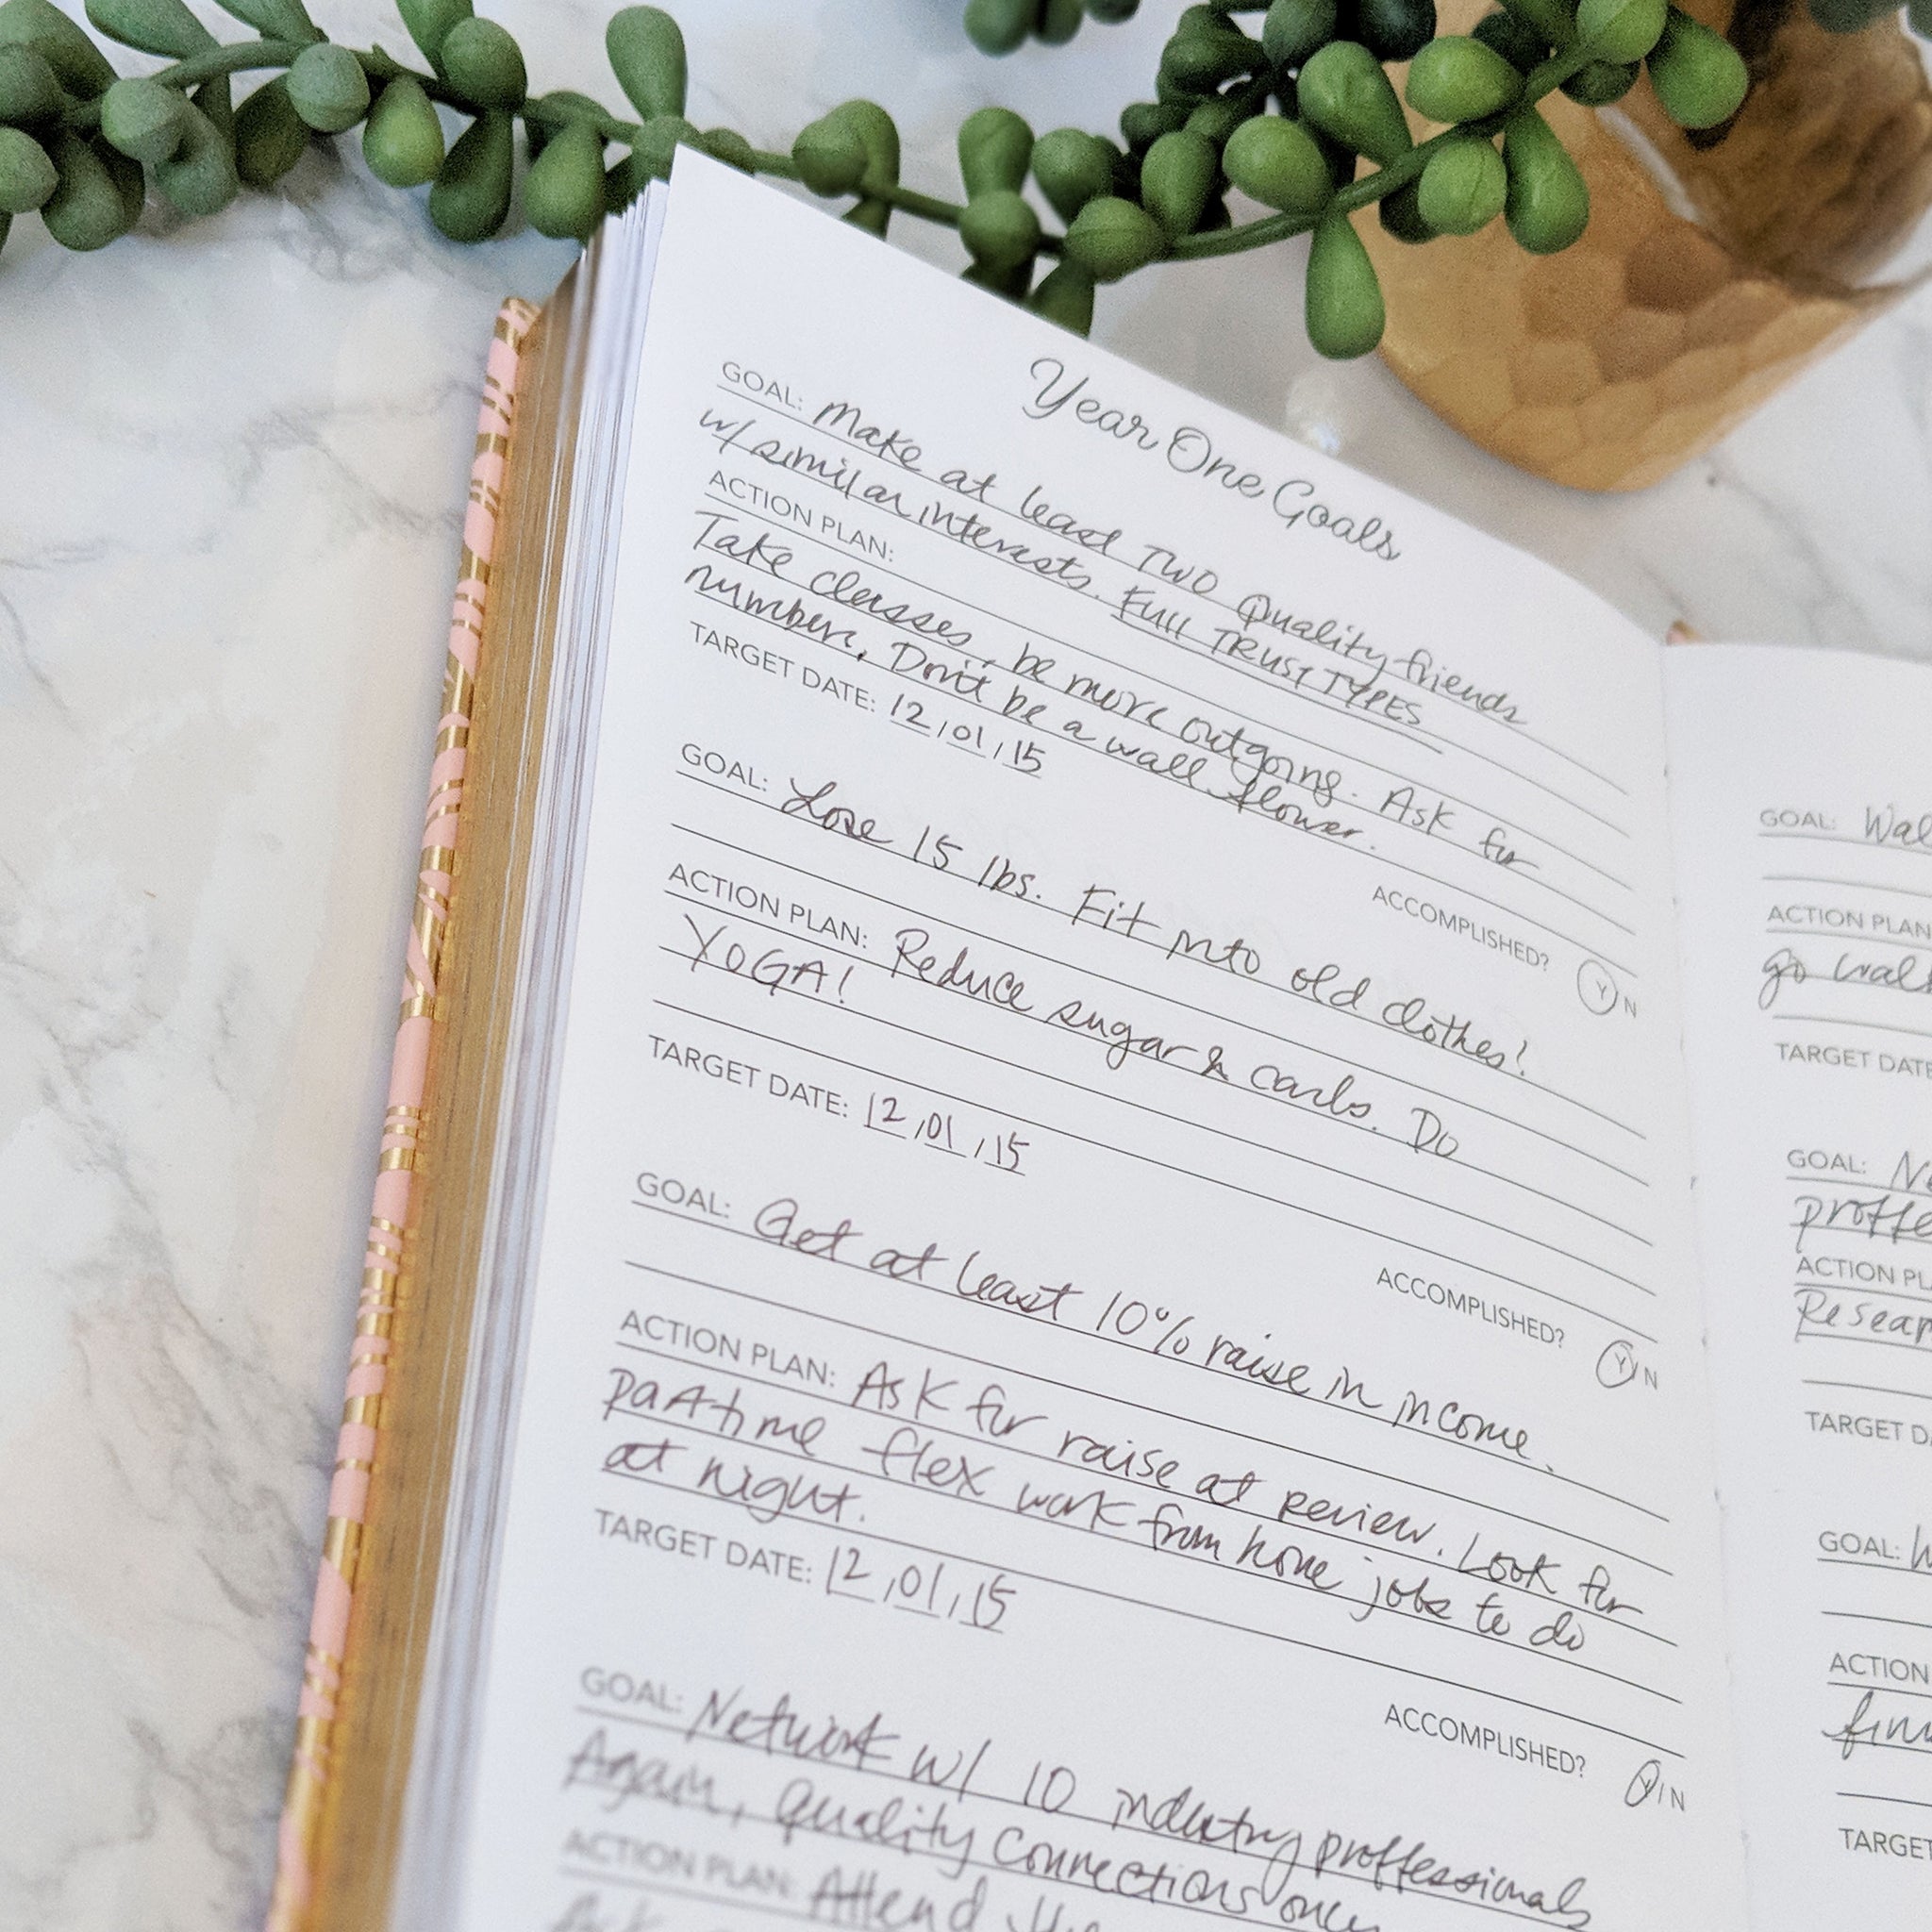 Year One Goals
GOAL: Make at least Two Quality friends
w/ similar interests. FUll TRUST TYPES
ACTION PLAN:
Take classes, be more outgoing. Ask for
numbers. Don't be a wall flower.
TARGET DATE: 12/01/15
ACCOMPLISHED? Y/N
GOAL: Lose 15 lbs. Fit into old clothes!
ACTION PLAN: Reduce sugar & carbs. Do
YOGA!
TARGET DATE: 12/01/15
ACCOMPLISHED? Y/N
GOAL: Get at least 10% raise in income.
ACTION PLAN: Ask for raise at review. Look for
part time flex work from home jobs to do
at night.
TARGET DATE: 12/01/15
ACCOMPLISHED? Y/N
GOAL: Network w/ 10 industry proffessionals
Again, quality connections only
ACTION PLAN: Attend
GOAL: Wal
ACTION PLAN
go wal
TARGET DATE
GOAL: Ne
proffe
ACTION PL
Resear
TARGET D
GOAL:
ACTION
TARGET